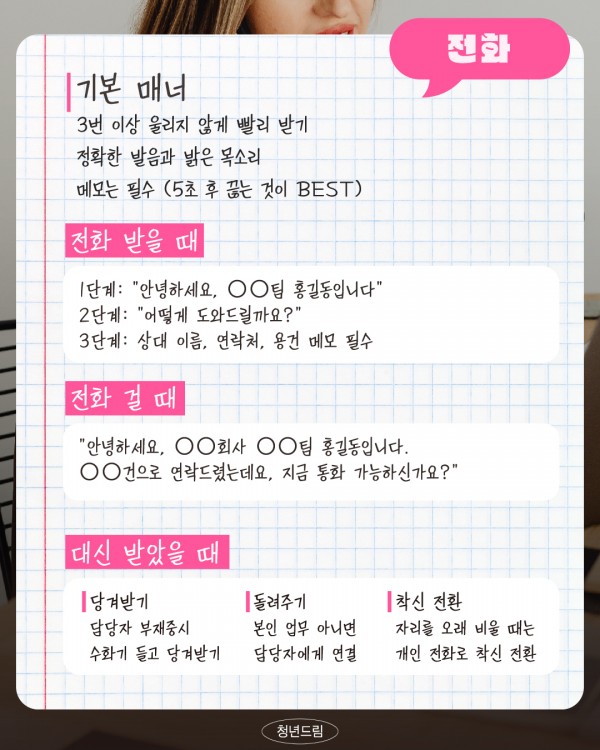 전화
기본 매너
3번 이상 울리지 않게 빨리 받기
정확한 발음과 밝은 목소리
메모는 필수 (5초 후 끊는 것이 BEST)
전화 받을 때
1단계: "안녕하세요, ○○팀 홍길동입니다"
2단계: "어떻게 도와드릴까요?"
3단계: 상대 이름, 연락처, 용건 메모 필수
전화 걸 때
"안녕하세요, ○○회사 ○○팀 홍길동입니다.
○○건으로 연락드렸는데요, 지금 통화 가능하신가요?"
대신 받았을 때
당겨받기
담당자 부재중시
수화기 들고 당겨받기
돌려주기
본인 업무 아니면
담당자에게 연결
착신 전환
자리를 오래 비울 때는
개인 전화로 착신 전환
청년드림